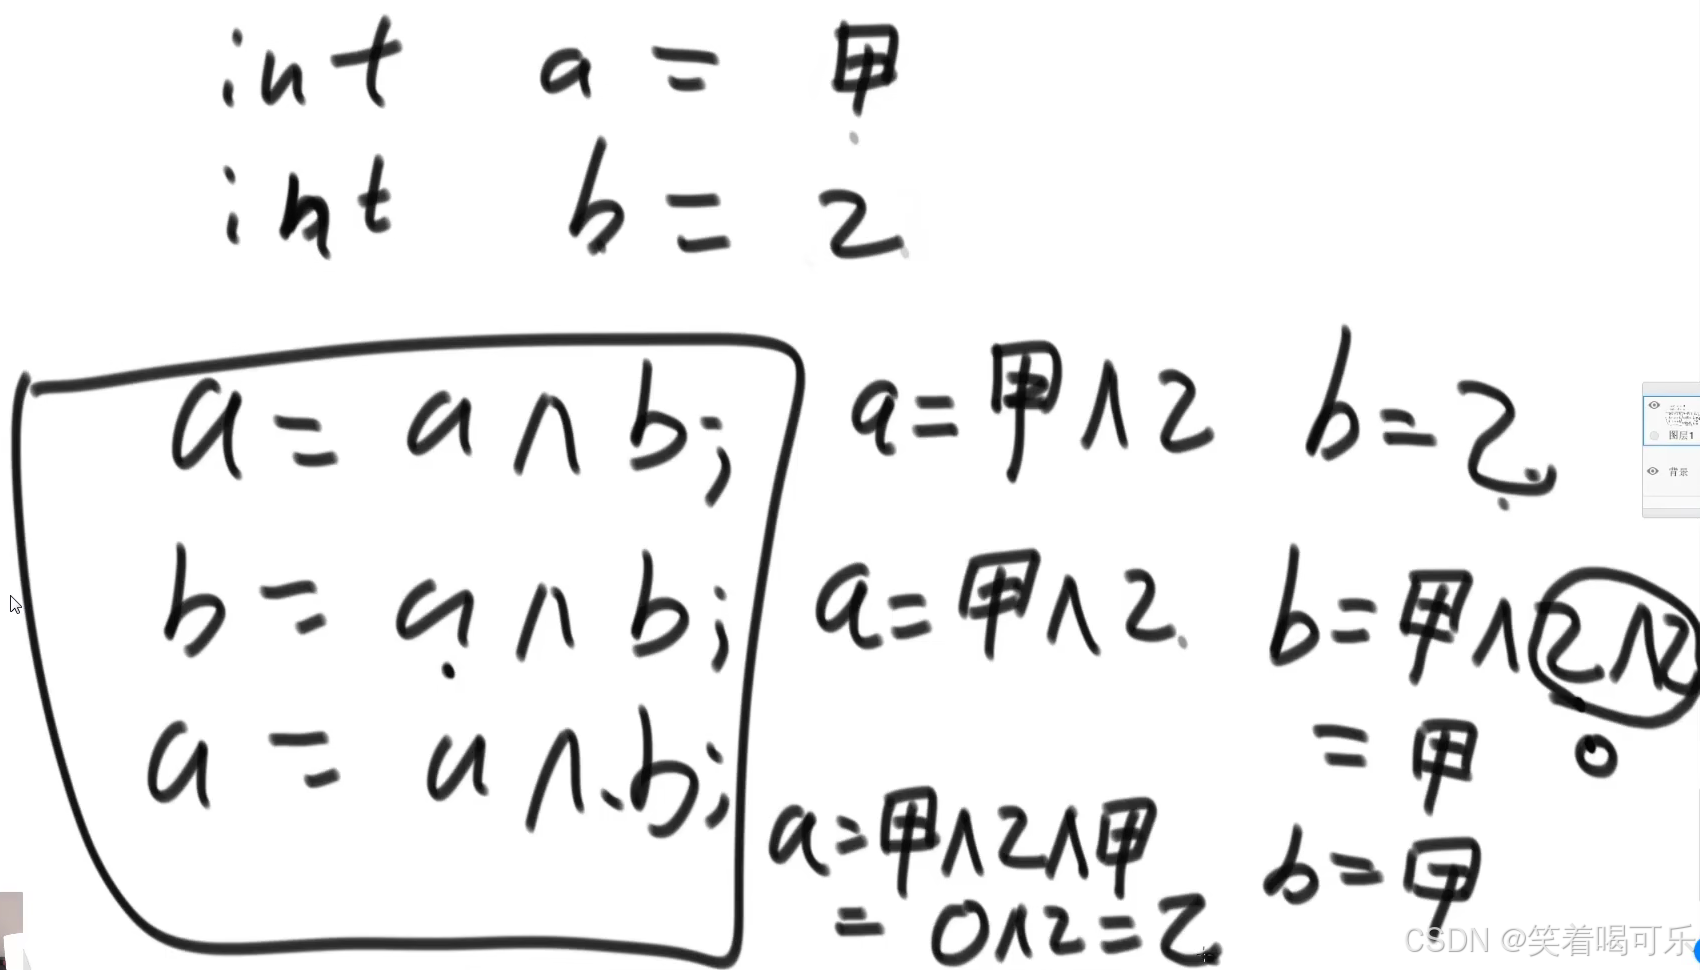 int a = 甲
int b = 乙
a = a ∧ b; a = 甲 ∧ 乙 b = 乙
b = a ∧ b; a = 甲 ∧ 乙 b = 甲 ∧ 乙 ∧ 乙
= 甲 0
a = a ∧ b; a = 甲 ∧ 乙 ∧ 甲 b = 甲
= 0 ∧ 乙 = 乙
图层1
背景
CSDN @笑着喝可乐